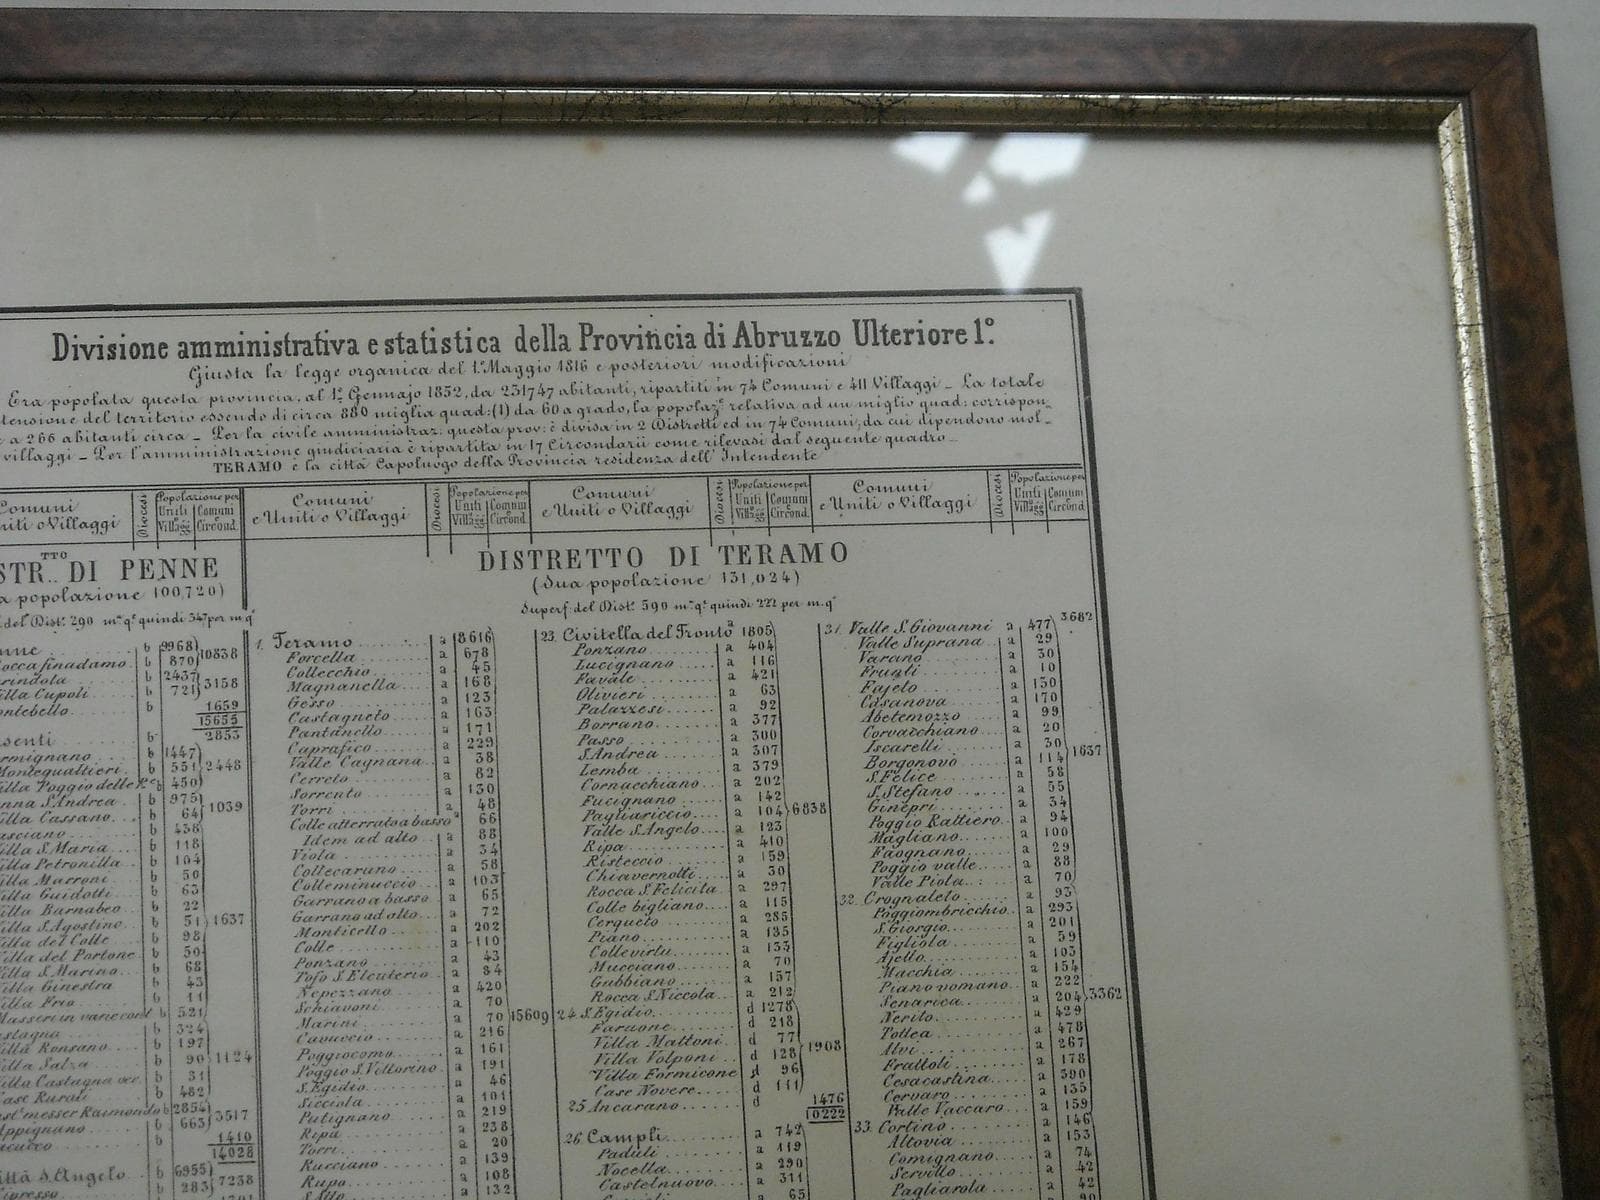 Divisione amministrativa e statistica della Provincia di Abruzzo Ulteriore 1º.
Giusta la legge organica del 1º Maggio 1816 e posteriori modificazioni
Era popolata questa provincia, al 1º Gennajo 1852, da 231747 abitanti, ripartiti in 74 Comuni e 411 Villaggi _ La totale
tensione del territorio essendo di circa 880 miglia quad: (1) da 60 a grado, la popolaz: relativa ad un miglio quad: corrispon_
a 266 abitanti circa _ Per la civile amministraz: questa prov: è divisa in 2 Distretti ed in 74 Comuni, da cui dipendono mol_
villaggi _ Per l'amministrazione giudiciaria è ripartita in 17 Circondarii come rilevasi dal seguente quadro _
TERAMO è la città Capoluogo della Provincia residenza dell'Intendente
Comuni e Uniti o Villaggi Diocesi Popolazione per Uniti o Villagg: Comuni e Circond.
DISTRETTO DI TERAMO
(Sua popolazione 131,024)
Superf: del Dist: 590 m. q. quindi 222 per m. q.
STR.TTO DI PENNE
popolazione 100,720)
del Dist: 290 m. q. quindi 347 per m. q.
nne b 9968
occa finadamo b 870 10838
rindola b 2437
illa Cupoli b 721 3158
ontebello b 1659
15655
senti b 2853
rmignano b 1447
Montegualtieri b 551 2448
illa Poggio delle b 450
nna S. Andrea b 975
illa Cassano b 64 1039
asciano b 438
illa S. Maria b 118
illa Petronilla b 104
illa Marroni b 50
illa Guidotti b 63
illa Barnabeo b 22
illa S. Agostino b 51 1637
illa del Colle b 98
illa del Portone b 50
illa S. Marino b 68
illa Ginestra b 43
illa Frio b 11
Masseri in varie cont b 521
stagna b 324
illa Ronsano b 197
illa Salza b 90 1124
illa Castagna vec b 31
ase Rurali b 482
messer Raimondo b 2854
Appignano b 663 3517
b 1410
14028
ittà S. Angelo b 6955
b 283 7238
1. Teramo a 8616
Forcella a 678
Collecchio a 45
Magnanella a 168
Gesso a 123
Castagneto a 163
Pantanello a 171
Caprafico a 229
Valle Cagnana a 38
Cerreto a 82
Sorrento a 130
Torri a 48
Colle atterrato a basso a 66
Idem ad alto a 88
Viola a 34
Collecaruno a 58
Colleminuccio a 103
Garrano a basso a 65
Garrano ad alto a 72
Monticello a 202
Colle a 110
Ponzano a 43
Tofo S. Eleuterio a 84
Nepezzano a 420
Schiavoni a 70
Marini a 70 15609
Cavuccio a 216
Poggiocomo a 161
Poggio S. Vittorino a 191
S. Egidio a 46
Sicciola a 101
Putignano a 219
Ripa a 238
Torri a 20
Rucciano a 139
Rupo a 108
S. Atto a 132
23. Civitella del Tronto a 1805
Ponzano a 404
Lucignano a 116
Favale a 421
Olivieri a 63
Palazzesi a 92
Borrano a 377
Passo a 300
S. Andrea a 307
Lemba a 379
Cornacchiano a 202
Fucignano a 142
Pagliariccio a 104 6838
Valle S. Angelo a 123
Ripa a 410
Risteccio a 159
Chiavernotti a 30
Rocca S. Felicita a 297
Colle bigliano a 115
Cerqueto a 285
Piano a 135
Collevirtu a 133
Mucciano a 70
Gabbiano a 157
Rocca S. Niccola a 212
24. S. Egidio d 1278
Faraone d 218
Villa Mattoni d 77
Villa Volponi d 128 1908
Villa Formicone d 96
Case Novere d 111
25 Ancarano d 1476
10222
26 Campli a 742
Paduli a 119
Nocella a 290
Castelnuovo a 311
a 65
3682
31. Valle S. Giovanni a 477
Valle Suprana a 29
Varano a 30
Frunti a 10
Fajeto a 130
Casanova a 170
Abetemozzo a 99
Corvacchiano a 20
Iscarelli a 30 1637
Borgonovo a 114
S. Felice a 58
S. Stefano a 55
Ginepri a 34
Poggio Rattiero a 94
Magliano a 100
Faognano a 29
Poggio valle a 88
Valle Piola a 70
32. Crognaleto a 93
Poggiombricchio a 293
S. Giorgio a 201
Figliola a 59
Ajello a 103
Macchia a 154
Piano vomano a 222
Senarica a 204 3362
Nerito a 429
Tottea a 478
Alvi a 267
Frattoli a 178
Cesacastina a 390
Cervaro a 135
Valle Vaccaro a 159
33. Cortino a 146
Altovia a 153
Comignano a 74
Servillo a 42
Pagliarola a 42